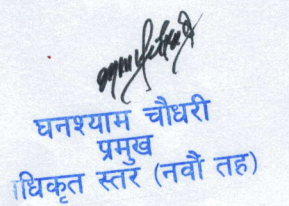 घनश्याम चौधरी
प्रमुख
धिकृत स्तर (नवौं तह)